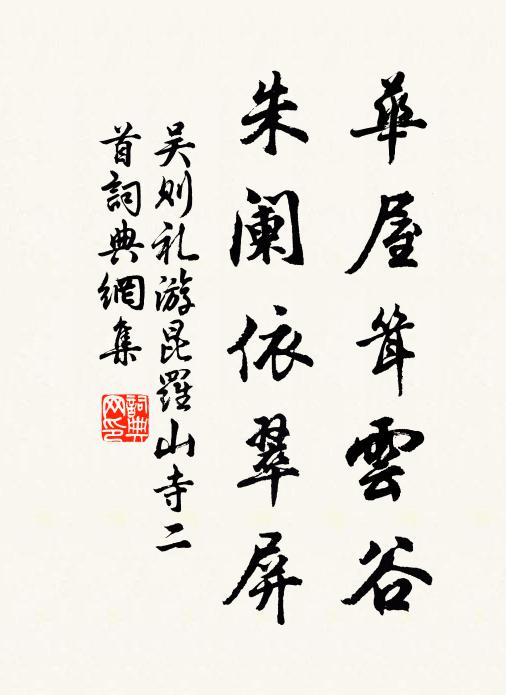 華屋茸雲谷
朱闌依翠屏
吴则礼游昆羅山寺二
首詞典網集
詞典网印